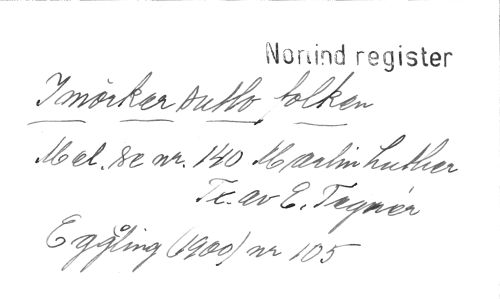 Norlind register
I mörker sutto folken
Mel. se nr. 140 Martin Luther
Tx. av E. Tegnér
Eggling (1900) nr 105